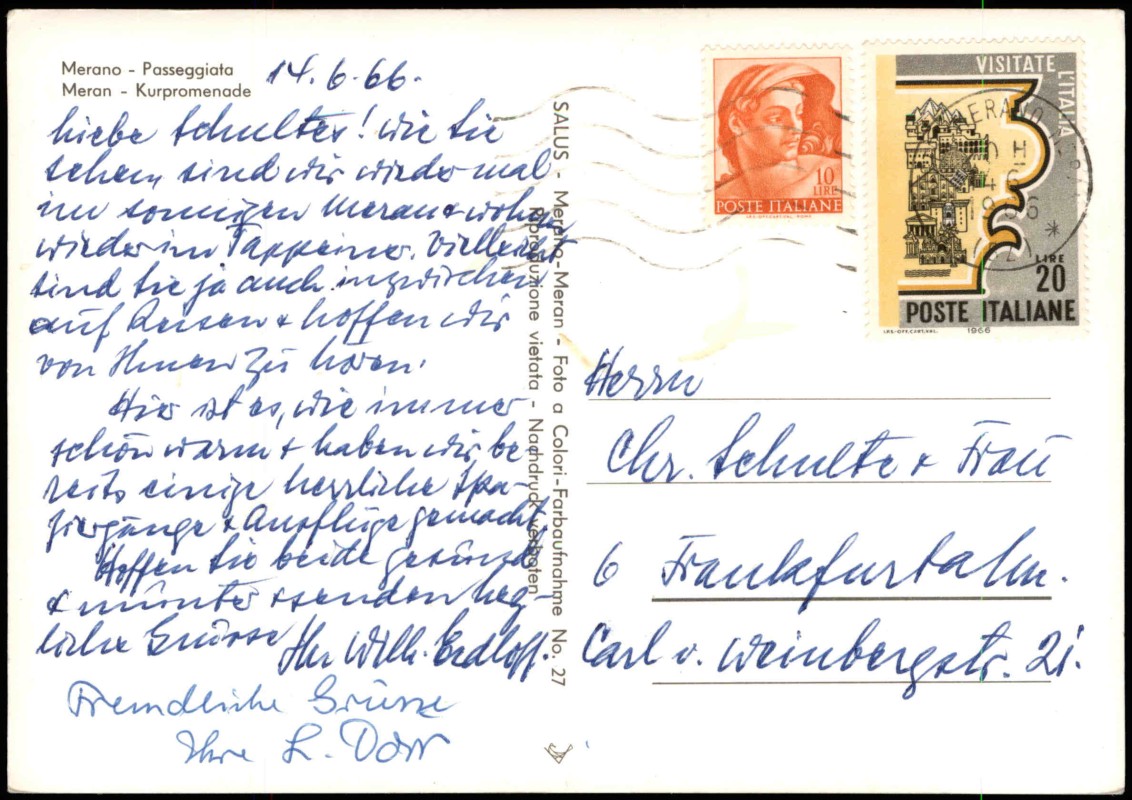 Merano - Passeggiata
Meran - Kurpromenade
14.6.66.
Liebe Schultes! Wie Sie
sehen, sind wir wieder mal
im sonnigen Meran + wohnen
wieder im Tappeiner. Vielleicht
sind Sie ja auch inzwischen
auf Reisen + hoffen wir
von Ihnen zu hören.
Hier ist es, wie immer
schön warm + haben wir be-
reits einige herrliche Spa-
ziergänge + Ausflüge gemacht.
Hoffen Sie beide gesund
+ munter + senden herz-
liche Grüsse Ihr Willi.
Freundliche Grüsse
Ihre L. Dorr
SALUS - Merano-Meran - Foto a Colori-Farbaufnahme No. 27
Riproduzione vietata - Nachdruck verboten
10
LIRE
POSTE ITALIANE
VISITATE L'ITALIA
LIRE
20
POSTE ITALIANE
1966
MERANO
1966
Herrn
Chr. Schulte + Frau
6 Frankfurt a/M.
Carl v. Weinbergstr. 21.